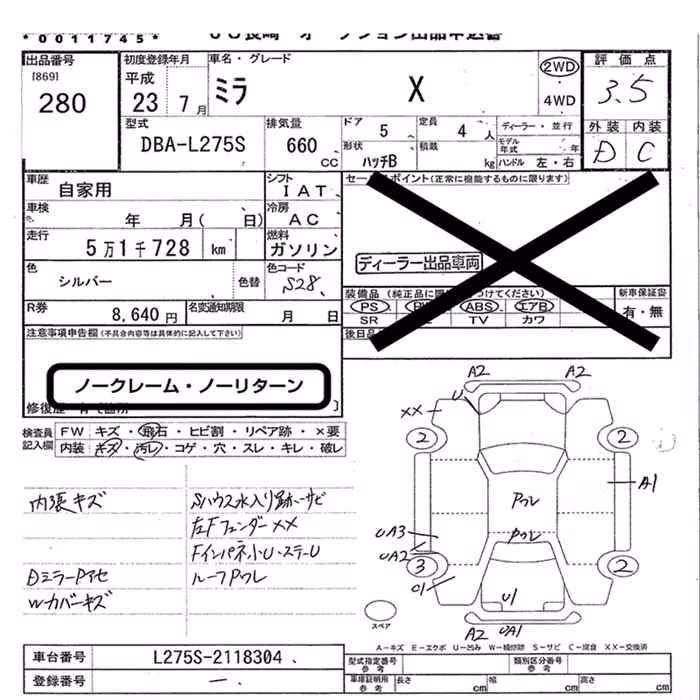 *0011745*
JU長崎 オークション出品申込書
出品番号
[869]
280
初度登録年月
平成
23 7月
車名・グレード
ミラ X
2WD
4WD
評価点
3.5
外装 内装
D C
型式
DBA-L275S
排気量
660
cc
ドア
5
定員
4人
ディーラー・並行
モデル年式 年
形状
ハッチB
積載
kg
ハンドル 左・右
車歴
自家用
シフト
IAT
車検
年 月( 日)
冷房
AC
走行
5万1千728 km
燃料
ガソリン
色
シルバー
色替
色コード
S28
R券
8,640円
名変通知期限
月 日
セールスポイント(正常に機能するものに限ります)
ディーラー出品車両
装備品
PS
ABS
エアB
SR
TV
カワ
新車保証書
有・無
後日品
注意事項申告欄(不具合内容等は具体的に記入して下さい)
ノークレーム・ノーリターン
検査員記入欄
FW キズ・飛石・ヒビ割・リペア跡・×要
内装 キズ・汚レ・コゲ・穴・スレ・キレ・破レ
内張キズ
Dミラーアセ
Wカバーキズ
Sハウス水入り跡サビ
左Fフェンダー××
Fインパネ小U・ステーU
ルーフPワレ
A2 A2
U
××
2 2
Pワレ
Pワレ
A1
UA3
UA2
3 2
U1
A2 UA1
スペア
A－キズ E－エクボ U－凹ミ W－補修跡 S－サビ C－腐食 XX－交換済
車台番号
L275S-2118304
登録番号
－
型式指定番号
参考
類別区分番号
参考
車庫証明用
参考
長さ cm
幅 cm
高さ cm